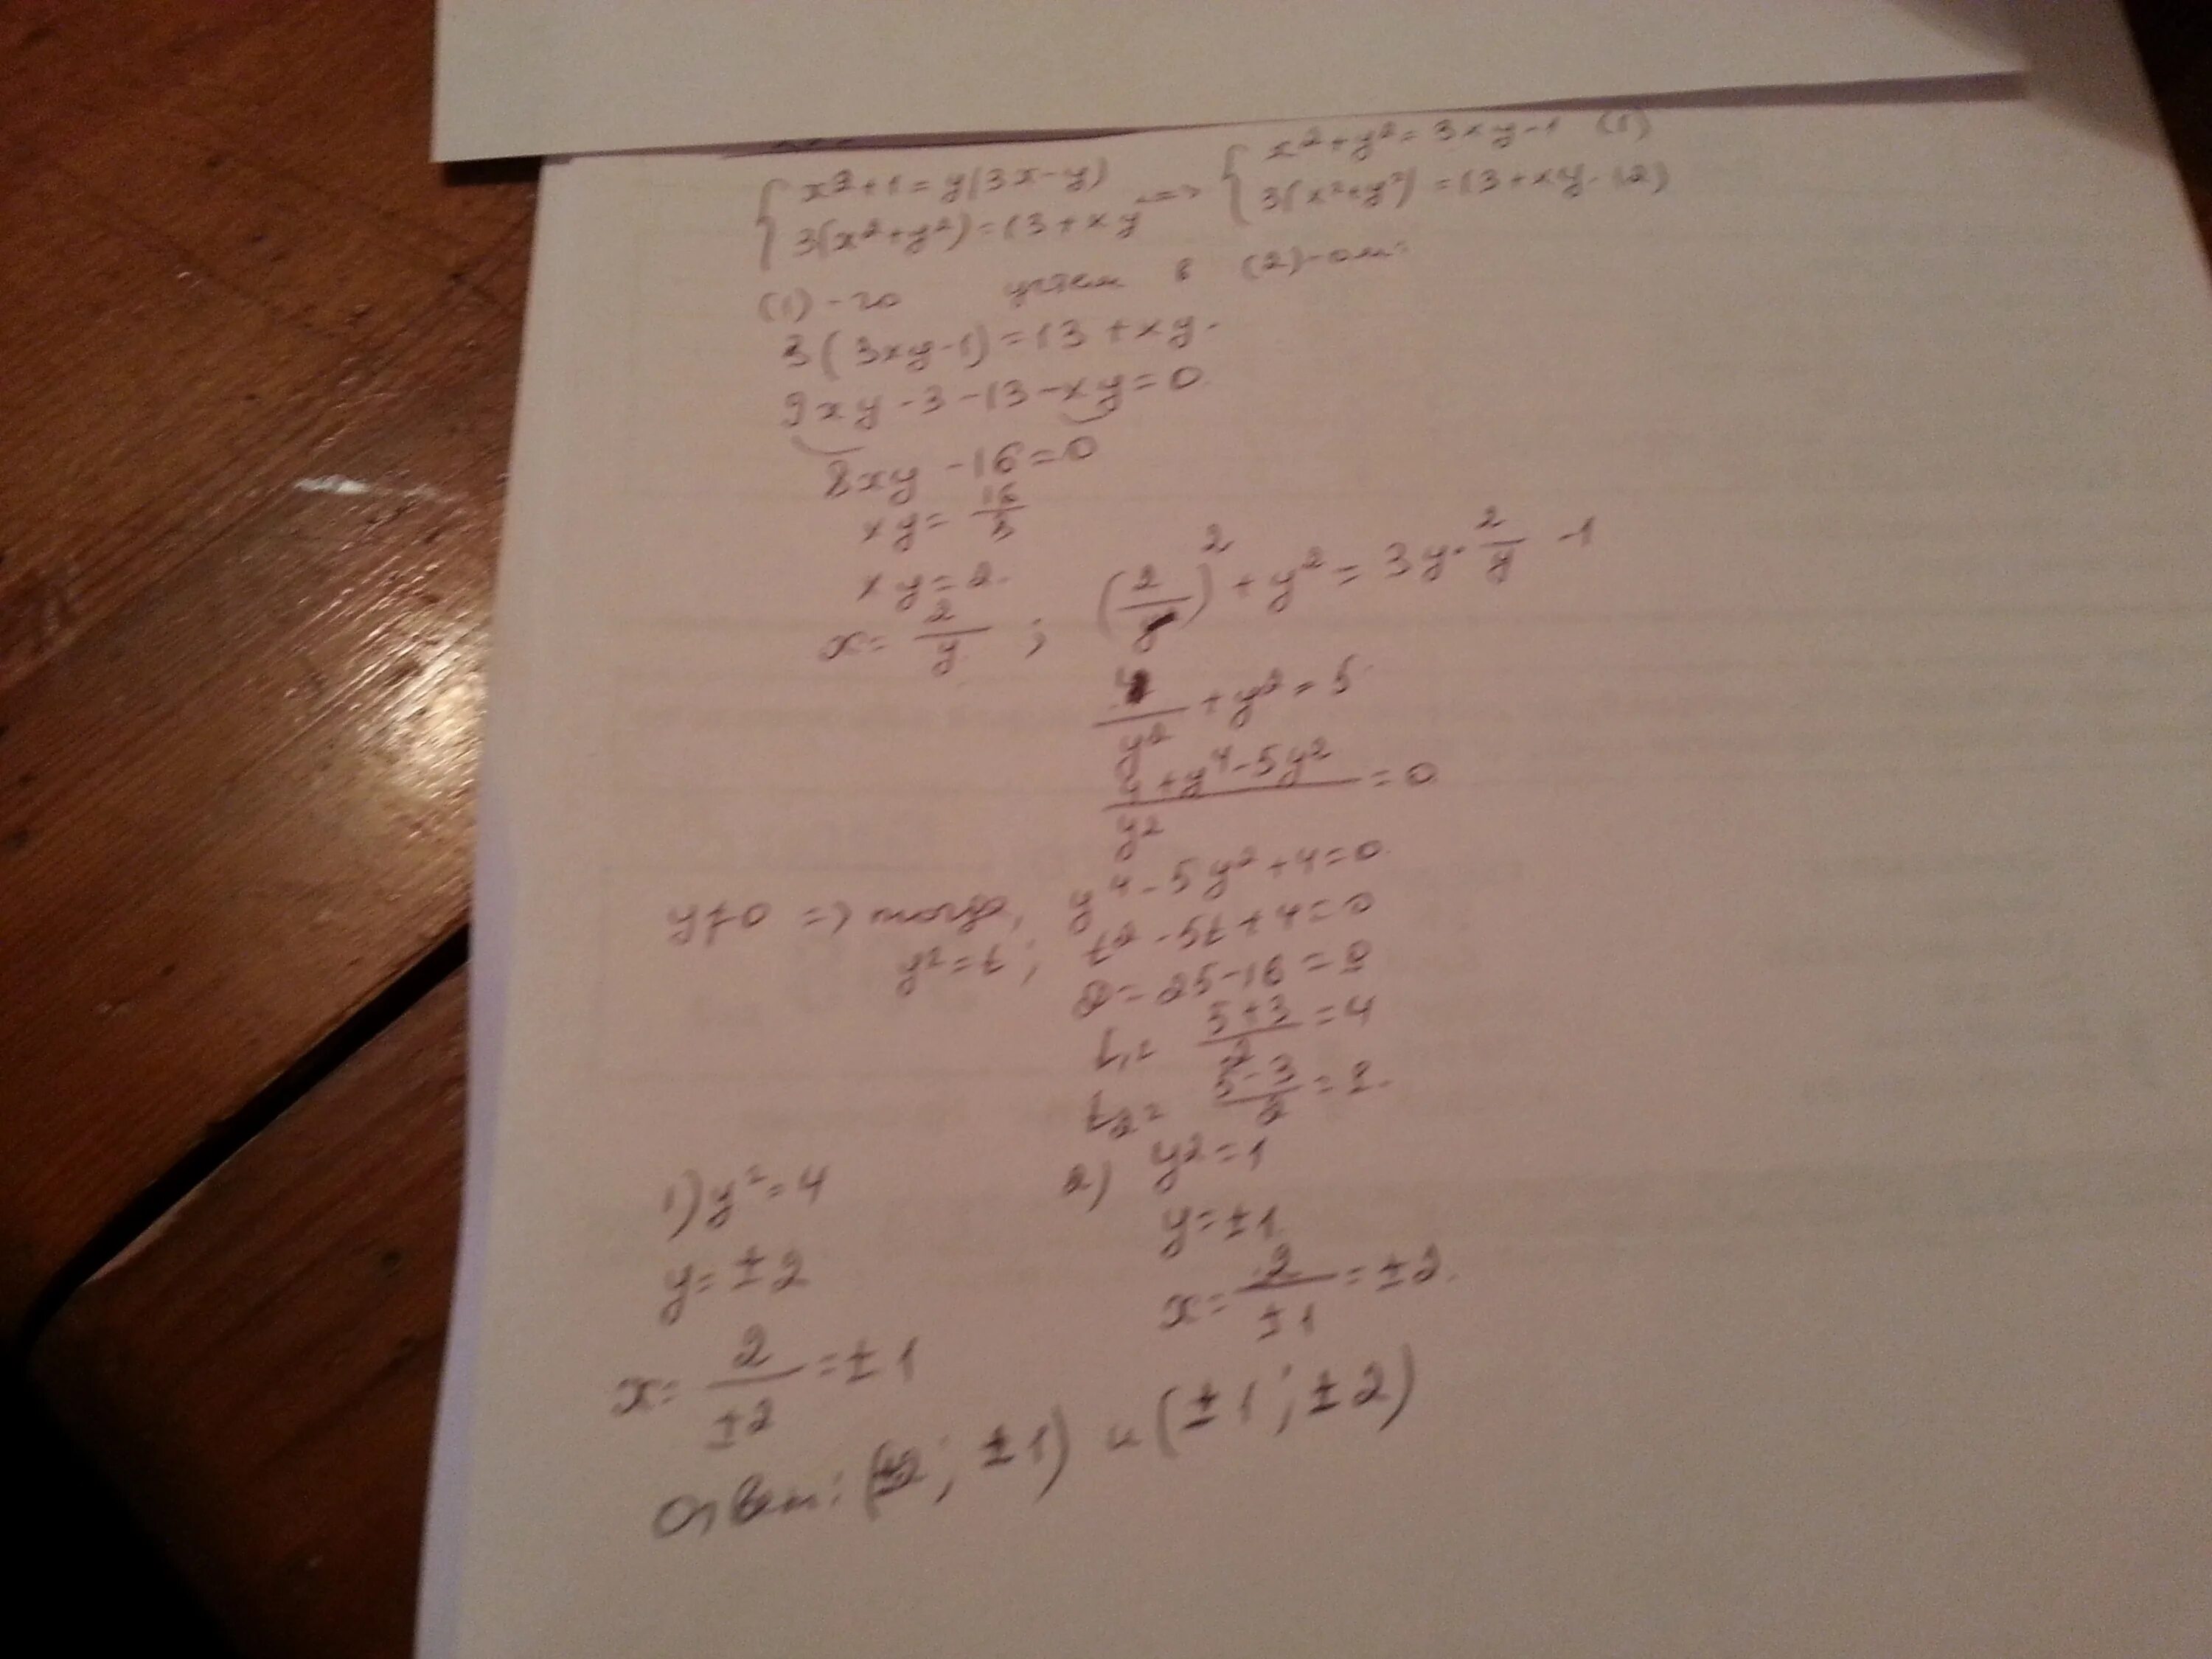 { x²+1=y(3x-y) => { x²+y²=3xy-1 (1)
3(x²+y²)=13+xy 3(x²+y²)=13+xy (2)
(1)-го учтем в (2)-ом:
3(3xy-1)=13+xy.
9xy-3-13-xy=0.
8xy-16=0
xy=16/8
xy=2.
x=2/y ; (2/y)²+y²=3y·2/y -1
4/y²+y²=5.
(4+y⁴-5y²)/y²=0
y≠0 => тогда, y⁴-5y²+4=0.
y²=t; t²-5t+4=0
D=25-16=9
t₁=(5+3)/2=4
t₂=(5-3)/2=1.
1) y²=4 2) y²=1
y=±2 y=±1
x=2/±2=±1 x=2/±1=±2.
Ответ: (±2; ±1) и (±1; ±2)